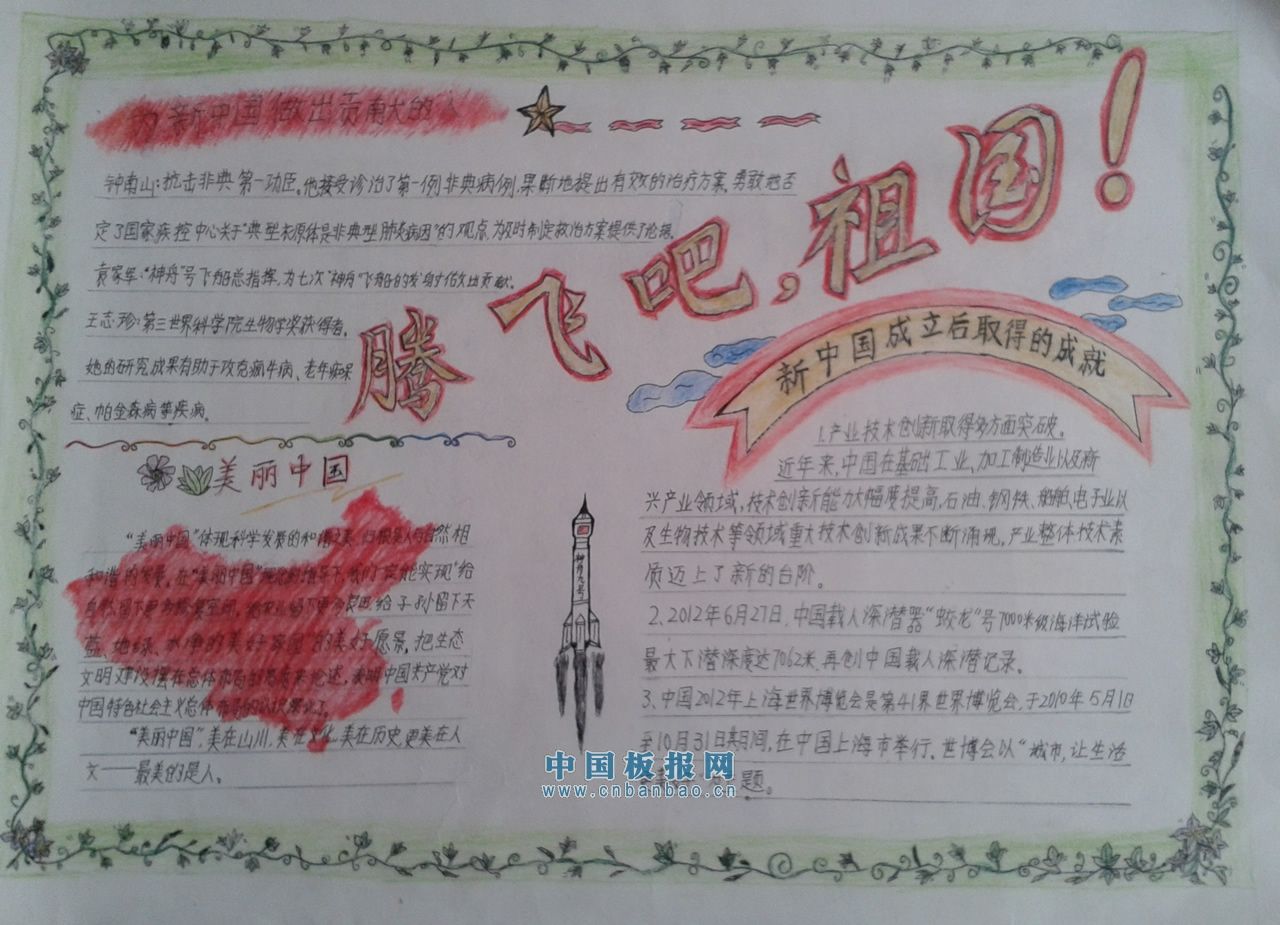 为新中国做出贡献的人
钟南山：抗击非典第一功臣。他接受诊治了第一例非典病例，果断地提出有效的治疗方案，勇敢地否
定了国家疾控中心关于"典型衣原体是非典型肺炎病因"的观点，为及时制定救治方案提供了论据。
袁家军："神舟"号飞船总指挥，为七次"神舟"飞船的发射做出贡献。
王志珍：第三世界科学院生物学奖获得者，
她的研究成果有助于攻克疯牛病、老年痴呆
症、帕金森病等疾病。
腾飞吧，祖国！
美丽中国
"美丽中国"体现科学发展的和谐之美，归根是人与自然相
和谐的发展，在"美丽中国"
天
蓝、地绿、水净的美好家园"的美好愿景，把生态
文明建设摆在总体布局的高度来论述，表明中国共产党对
中国特色社会主义总体布局的认识深化了。
"美丽中国"，美在山川，美在文化，美在历史，更美在人
文——最美的是人。
神舟九号
新中国成立后取得的成就
1.产业技术创新取得多方面突破。
近年来，中国在基础工业、加工制造业以及新
兴产业领域，技术创新能力大幅度提高，石油、钢铁、船舶、电子业以
及生物技术等领域重大技术创新成果不断涌现，产业整体技术素
质迈上了新的台阶。
2.2012年6月27日，中国载人深潜器"蛟龙"号7000米级海洋试验
最大下潜深度达7062米，再创中国载人深潜记录。
3、中国2012年上海世界博览会是第41界世界博览会，于2010年5月1日
至10月31日期间，在中国上海市举行。世博会以"城市，让生活
题。
中国板报网
www.cnbanbao.cn